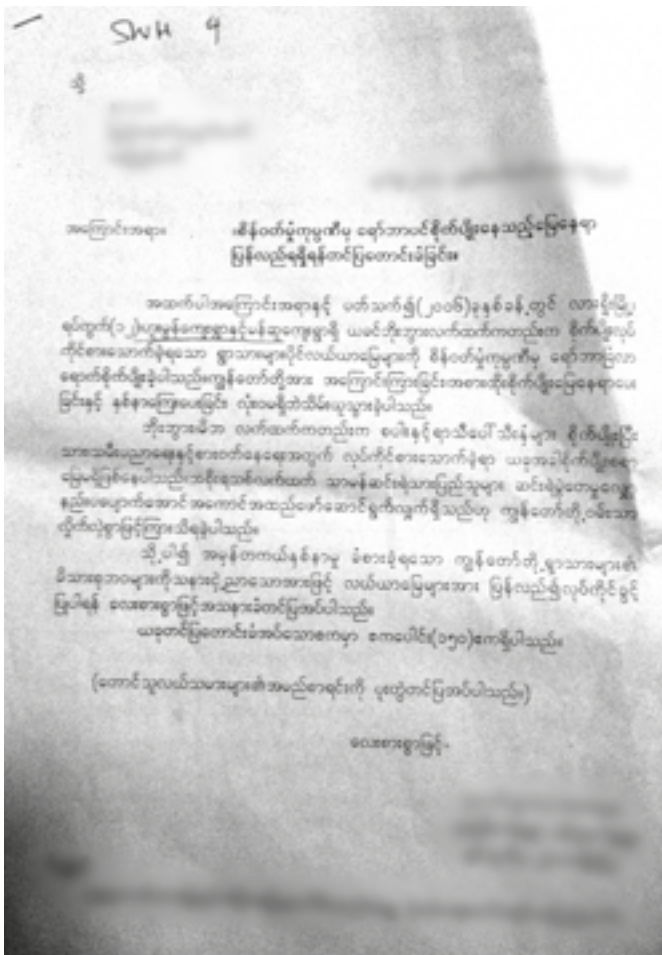 SWH 4
သို့
အကြောင်းအရာ။ ။စိန်ဝတ်မှုံကုမ္ပဏီမှ ရော်ဘာပင်စိုက်ပျိုးနေသည့်မြေနေရာ
ပြန်လည်ရရှိရန်တင်ပြတောင်းခံခြင်း။
အထက်ပါအကြောင်းအရာနှင့် ပတ်သက်၍(၂၀၀၆)ခုနှစ်ခန့်တွင် လားရှိုးမြို့၊
ရပ်ကွက်(၁၂)ဟူးမွန်ကျေးရွာနှင့်မန်ဆူကျေးရွာရှိ ယခင်ဘိုးဘွားလက်ထက်ကတည်းက စိုက်ပျိုးလုပ်
ကိုင်စားသောက်ခဲ့ရသော ရွာသားများပိုင်လယ်ယာမြေများကို စိန်ဝတ်မှုံကုမ္ပဏီမှ ရော်ဘာခြံလာ
ရောက်စိုက်ပျိုးခဲ့ပါသည်။ကျွန်တော်တို့အား အကြောင်းကြားခြင်းအစားထိုးစိုက်ပျိုးမြေနေရာပေး
ခြင်းနှင့် နှစ်နာကြေးပေးခြင်း လုံးဝမရှိဘဲသိမ်းယူသွားခဲ့ပါသည်။
ဘိုးဘွားမိဘ လက်ထက်ကတည်းက စပါးနှင့်ရာသီပေါ်သီးနှံများ စိုက်ပျိုးပြီး
သားသမီးပညာရေးနှင့်စားဝတ်နေရေးအတွက် လုပ်ကိုင်စားသောက်ခဲ့ရာ ယခုအခါစိုက်ပျိုးစရာ
မြေမရှိဖြစ်နေပါသည်။အစိုးရသစ်လက်ထက် သာမန်ဆင်းရဲသားပြည်သူများ ဆင်းရဲမွဲတေမှုလျှော့
နည်းပပျောက်အောင် အကောင်အထည်ဖော်ဆောင်ရွက်လျှက်ရှိသည်ဟု ကျွန်တော်တို့ဝမ်းသာ
လှိုက်လှဲစွာဖြင့်ကြားသိရခဲ့ပါသည်။
သို့ပါ၍ အမှန်တကယ်နှစ်နာမှု ခံစားခဲ့ရသော ကျွန်တော်တို့ရွာသားများ၏
မိသားစုဘဝများကိုသနားငဲ့ညှာသောအားဖြင့် လယ်ယာမြေများအား ပြန်လည်၍လုပ်ကိုင်ခွင့်
ပြုပါရန် လေးစားစွာဖြင့်အသနားခံတင်ပြအပ်ပါသည်။
ယခုတင်ပြတောင်းခံအပ်သောဧကမှာ ဧကပေါင်း(၁၅၀)ဧကရှိပါသည်။
(တောင်သူလယ်သမားများ၏အမည်စာရင်းကို ပူးတွဲတင်ပြအပ်ပါသည်။)
လေးစားစွာဖြင့်-